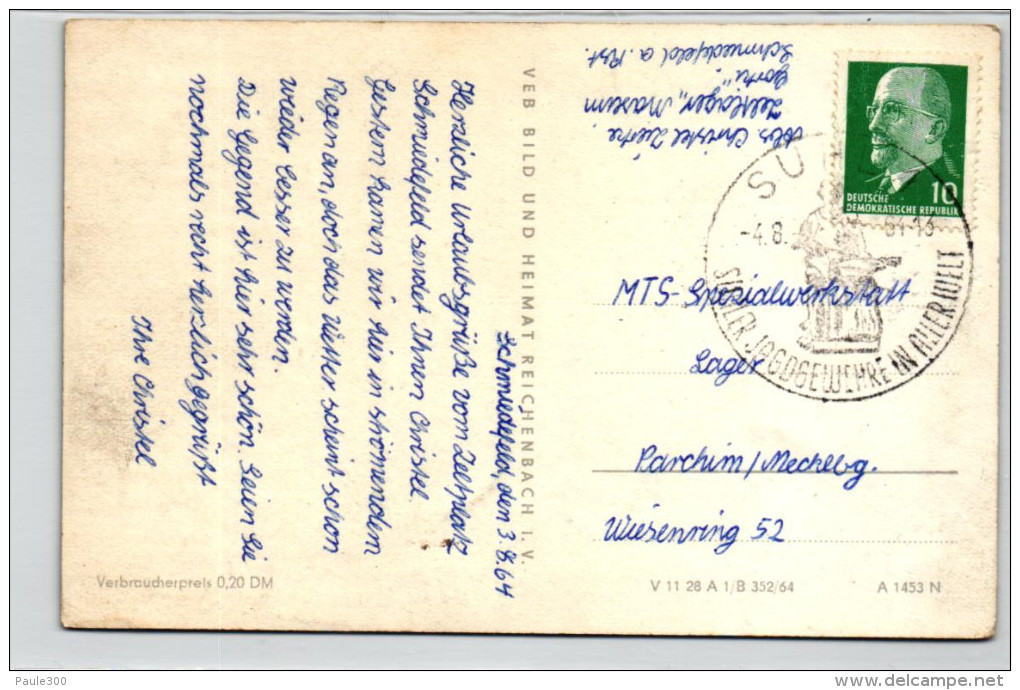 Schmiedefeld, den 3.8.64
Herzliche Urlaubsgrüße vom Zeltplatz
Schmiedefeld sendet Ihnen Christel.
Gestern kamen wir hier in strömendem
Regen an, doch das Wetter scheint schon
wieder besser zu werden.
Die Gegend ist hier sehr schön. Seien Sie
nochmals recht herzlich gegrüßt
Ihre Christel
VEB BILD UND HEIMAT REICHENBACH I. V.
Abs. Christel
Zeltlager „Maxim
Gorki“.
Schmiedefeld a. Rst.
10
DEUTSCHE
DEMOKRATISCHE REPUBLIK
SUHL
-4.8. 64-13
SUHLER JAGDGEWEHRE IN ALLER WELT
MTS-Spezialwerkstatt
Lager
Parchim/Mecklbg.
Wiesenring 52
Verbraucherpreis 0,20 DM
V 11 28 A 1/B 352/64
A 1453 N
Paule300
www.delcampe.net